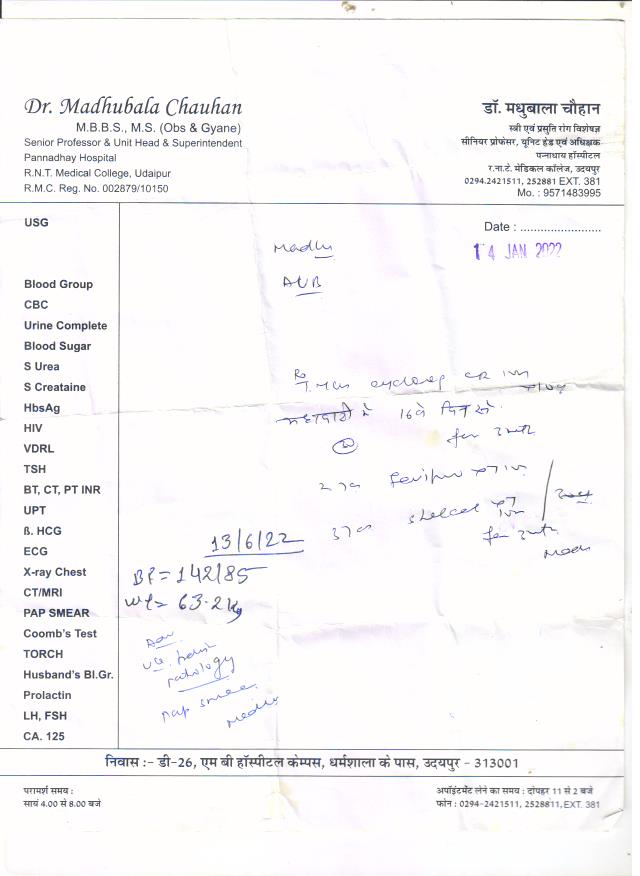 Dr. Madhubala Chauhan
M.B.B.S., M.S. (Obs & Gyane)
Senior Professor & Unit Head & Superintendent
Pannadhay Hospital
R.N.T. Medical College, Udaipur
R.M.C. Reg. No. 002879/10150
डॉ. मधुबाला चौहान
स्त्री एवं प्रसुति रोग विशेषज्ञ
सीनियर प्रोफेसर, यूनिट हेड एवं अधिक्षक
पन्नाधाय हॉस्पिटल
र.ना.टे. मेडिकल कॉलेज, उदयपुर
0294.2421511, 252881 EXT. 381
Mo. : 9571483995
USG
Date : ......................
14 JAN 2022
Madhu
Blood Group
AUB
CBC
Urine Complete
Blood Sugar
S Urea
S Creataine
HbsAg
16 वे दिन से
HIV
VDRL
TSH
BT, CT, PT INR
UPT
shelcal
ß. HCG
13/6/22
ECG
X-ray Chest
BP = 142/85
CT/MRI
wt = 63.2 kg
PAP SMEAR
Coomb's Test
TORCH
Husband's Bl.Gr.
Prolactin
pap smear
LH, FSH
CA. 125
निवास :- डी-26, एम बी हॉस्पीटल केम्पस, धर्मशाला के पास, उदयपुर - 313001
परामर्श समय :
सायं 4.00 से 8.00 बजे
अपॉइंटमेंट लेने का समय : दोपहर 11 से 2 बजे
फोन : 0294-2421511, 2528811, EXT. 381